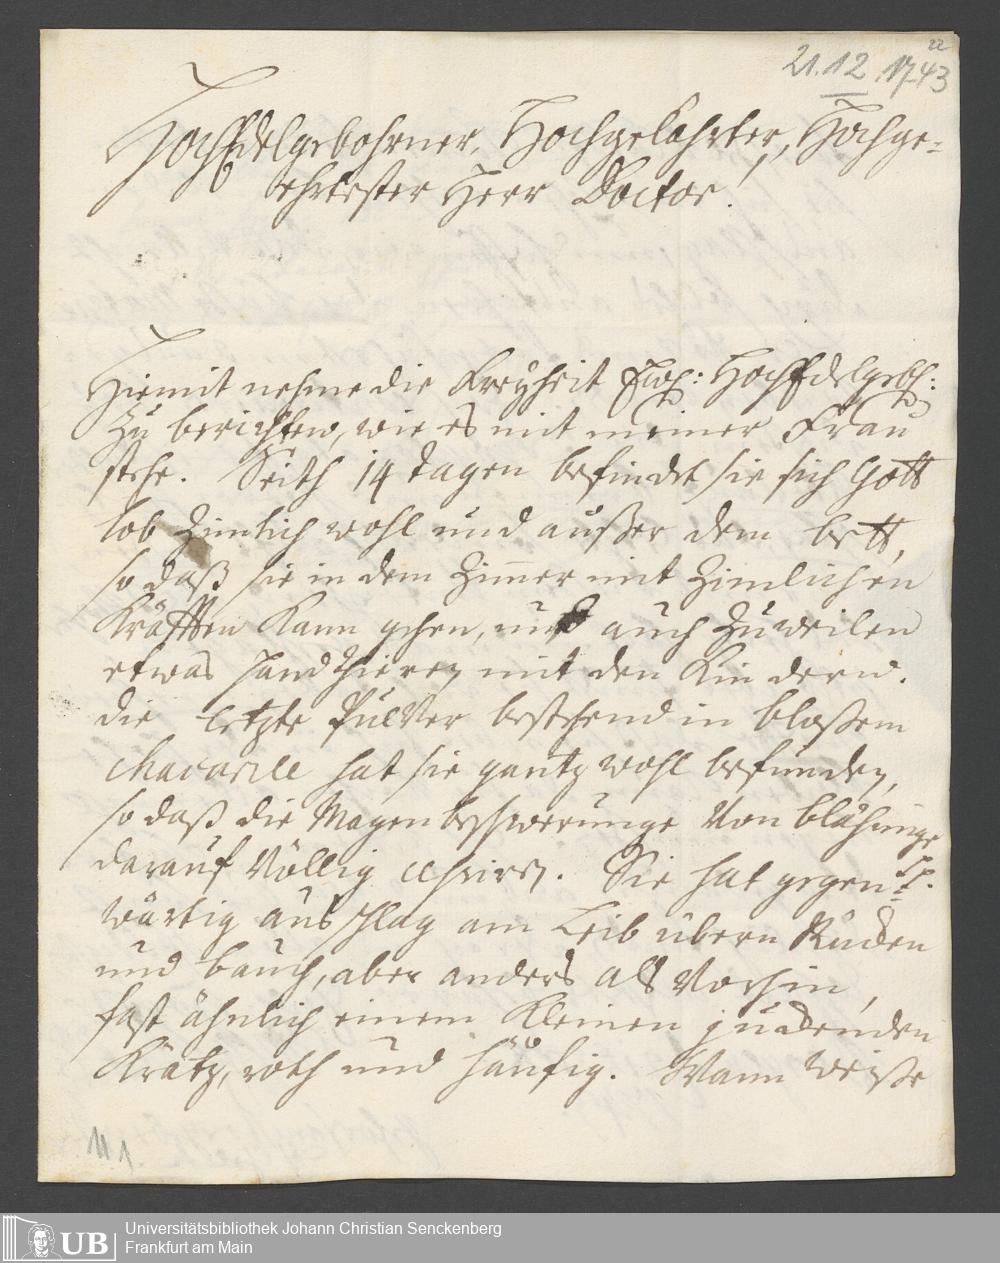 22
21.12.1743
HochEdelgebohrner, Hochgelahrter, Hochge-
ehrtester Herr Doctor!
Hiemit nehme die Freyheit Ew: HochEdelgeb:
zu berichten, wie es mit meiner Frau
stehe. Seith 14 tagen befindet sie sich Gott
lob zimlich wohl und außer dem bett,
so daß sie in dem Zimer mit zimlichen
Kräfften kann gehen, und auch zuweilen
etwas handthieren mit den Kindern.
die letzte Pulver bestehend in bloßem
Chacarill hat sie gantz wohl befunden,
so daß die Magenbeschwerunge von blähunge
darauf völlig cessiren. Sie hat gegen-
wärtig ausschlag am Leib übern Rücken
und bauch, aber anders als vorhin,
fast ähnlich einem kleinen juckenden
Krätz, roth und häufig. Wann weiße
M 1.
UB
Universitätsbibliothek Johann Christian Senckenberg
Frankfurt am Main